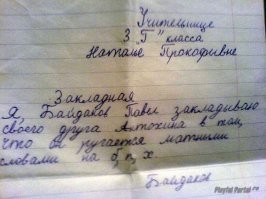 Учительнице
3 "Г" класса
Наталье Прокофьевне
Закладная
Я, Байдаков Павел закладываю
своего друга Антохина в том,
что он ругается матными
словами на б, п, х
Байдаков
Playful Portal.ru